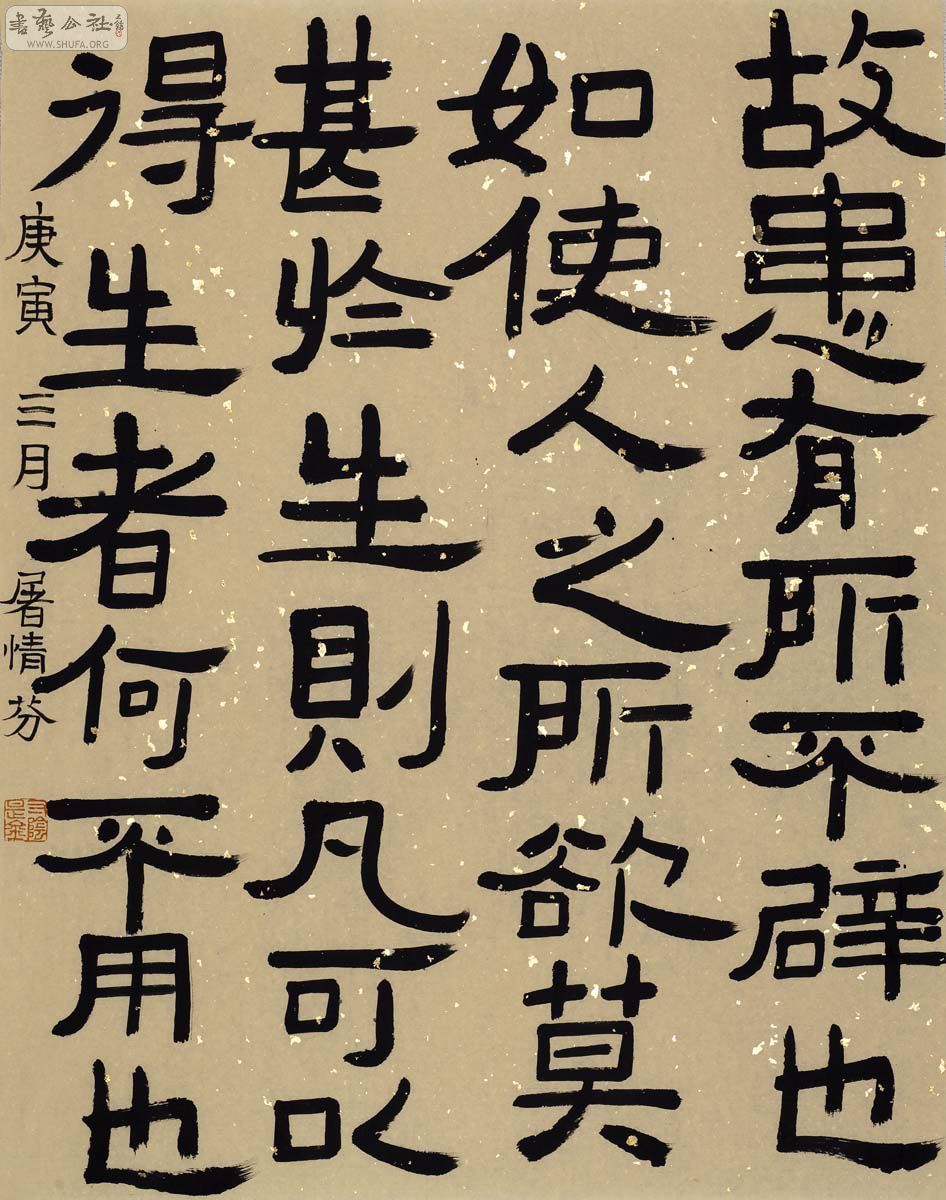 故患有所不辟也
如使人之所欲莫
甚於生則凡可以
得生者何不用也
庚寅 三月 屠情芬
書藝公社
WWW.SHUFA.ORG